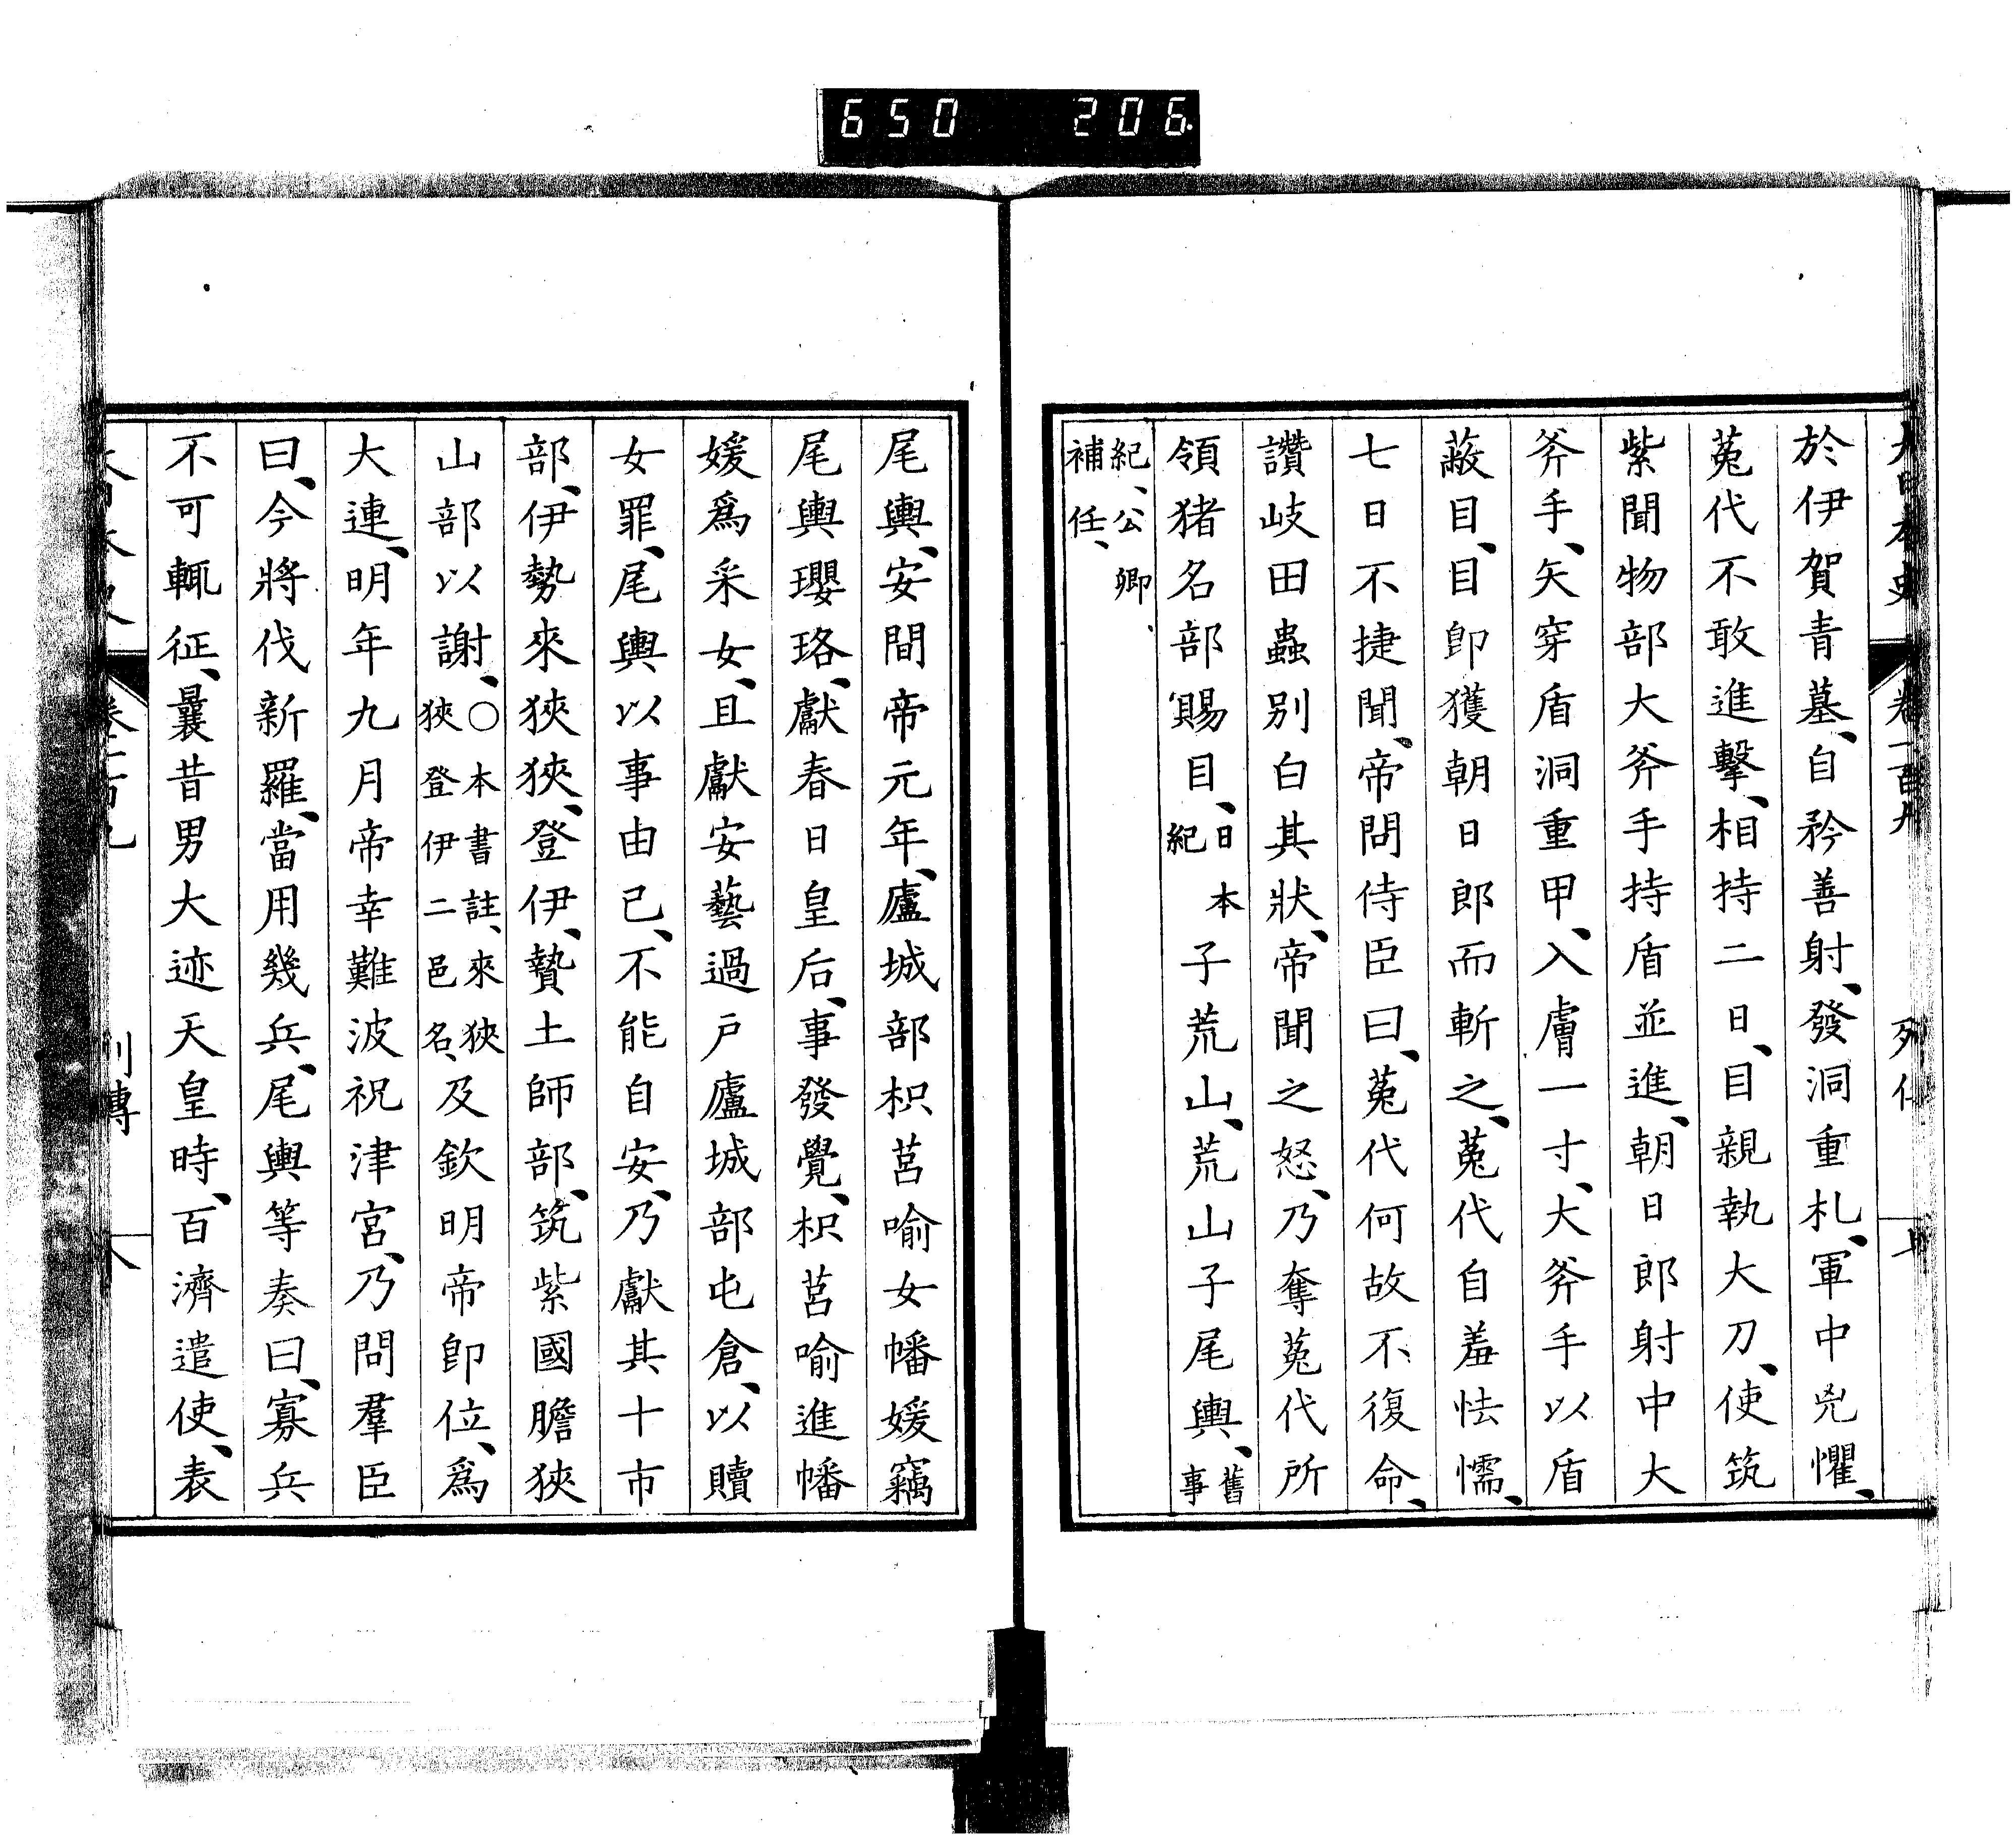 650 206
於伊賀青墓、自矜善射、發洞重札、軍中兇懼、
菟代不敢進擊、相持二日、目親執大刀、使筑
紫聞物部大斧手持盾並進、朝日郎射中大
斧手、矢穿盾洞重甲、入膚一寸、大斧手以盾
蔽目、目卽獲朝日郎而斬之、菟代自羞怯懦、
七日不捷聞、帝問侍臣曰、菟代何故不復命、
讚岐田蟲別白其狀、帝聞之怒、乃奪菟代所
領猪名部賜目、日本紀子荒山、荒山子尾輿、舊事
紀、公卿補任、
尾輿、安閒帝元年、廬城部枳莒喻女幡媛竊
尾輿瓔珞、獻春日皇后、事發覺、枳莒喻進幡
媛爲采女、且獻安藝過戸廬城部屯倉、以贖
女罪、尾輿以事由己、不能自安、乃獻其十市
部、伊勢來狹狹、登伊、贄土師部、筑紫國膽狹
山部以謝、○本書註、來狹狹登伊二邑名、及欽明帝卽位、爲
大連、明年九月帝幸難波祝津宮、乃問羣臣
曰、今將伐新羅、當用幾兵、尾輿等奏曰、寡兵
不可輒征、曩昔男大迹天皇時、百濟遣使、表